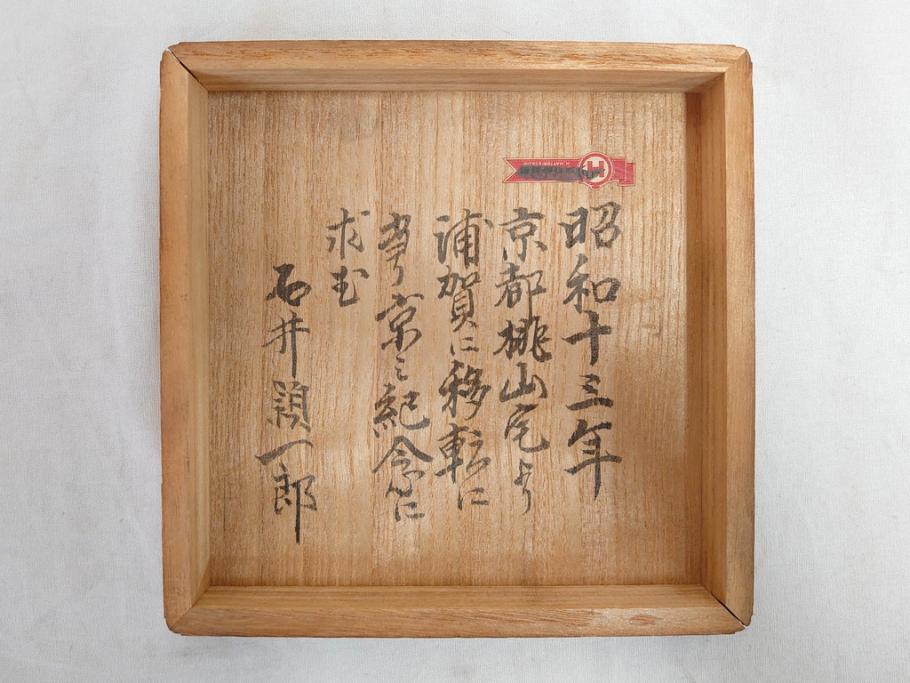 昭和十三年
京都桃山宅より
浦賀に移転に
当り京之紀念に
求む
石井頴一郎
H